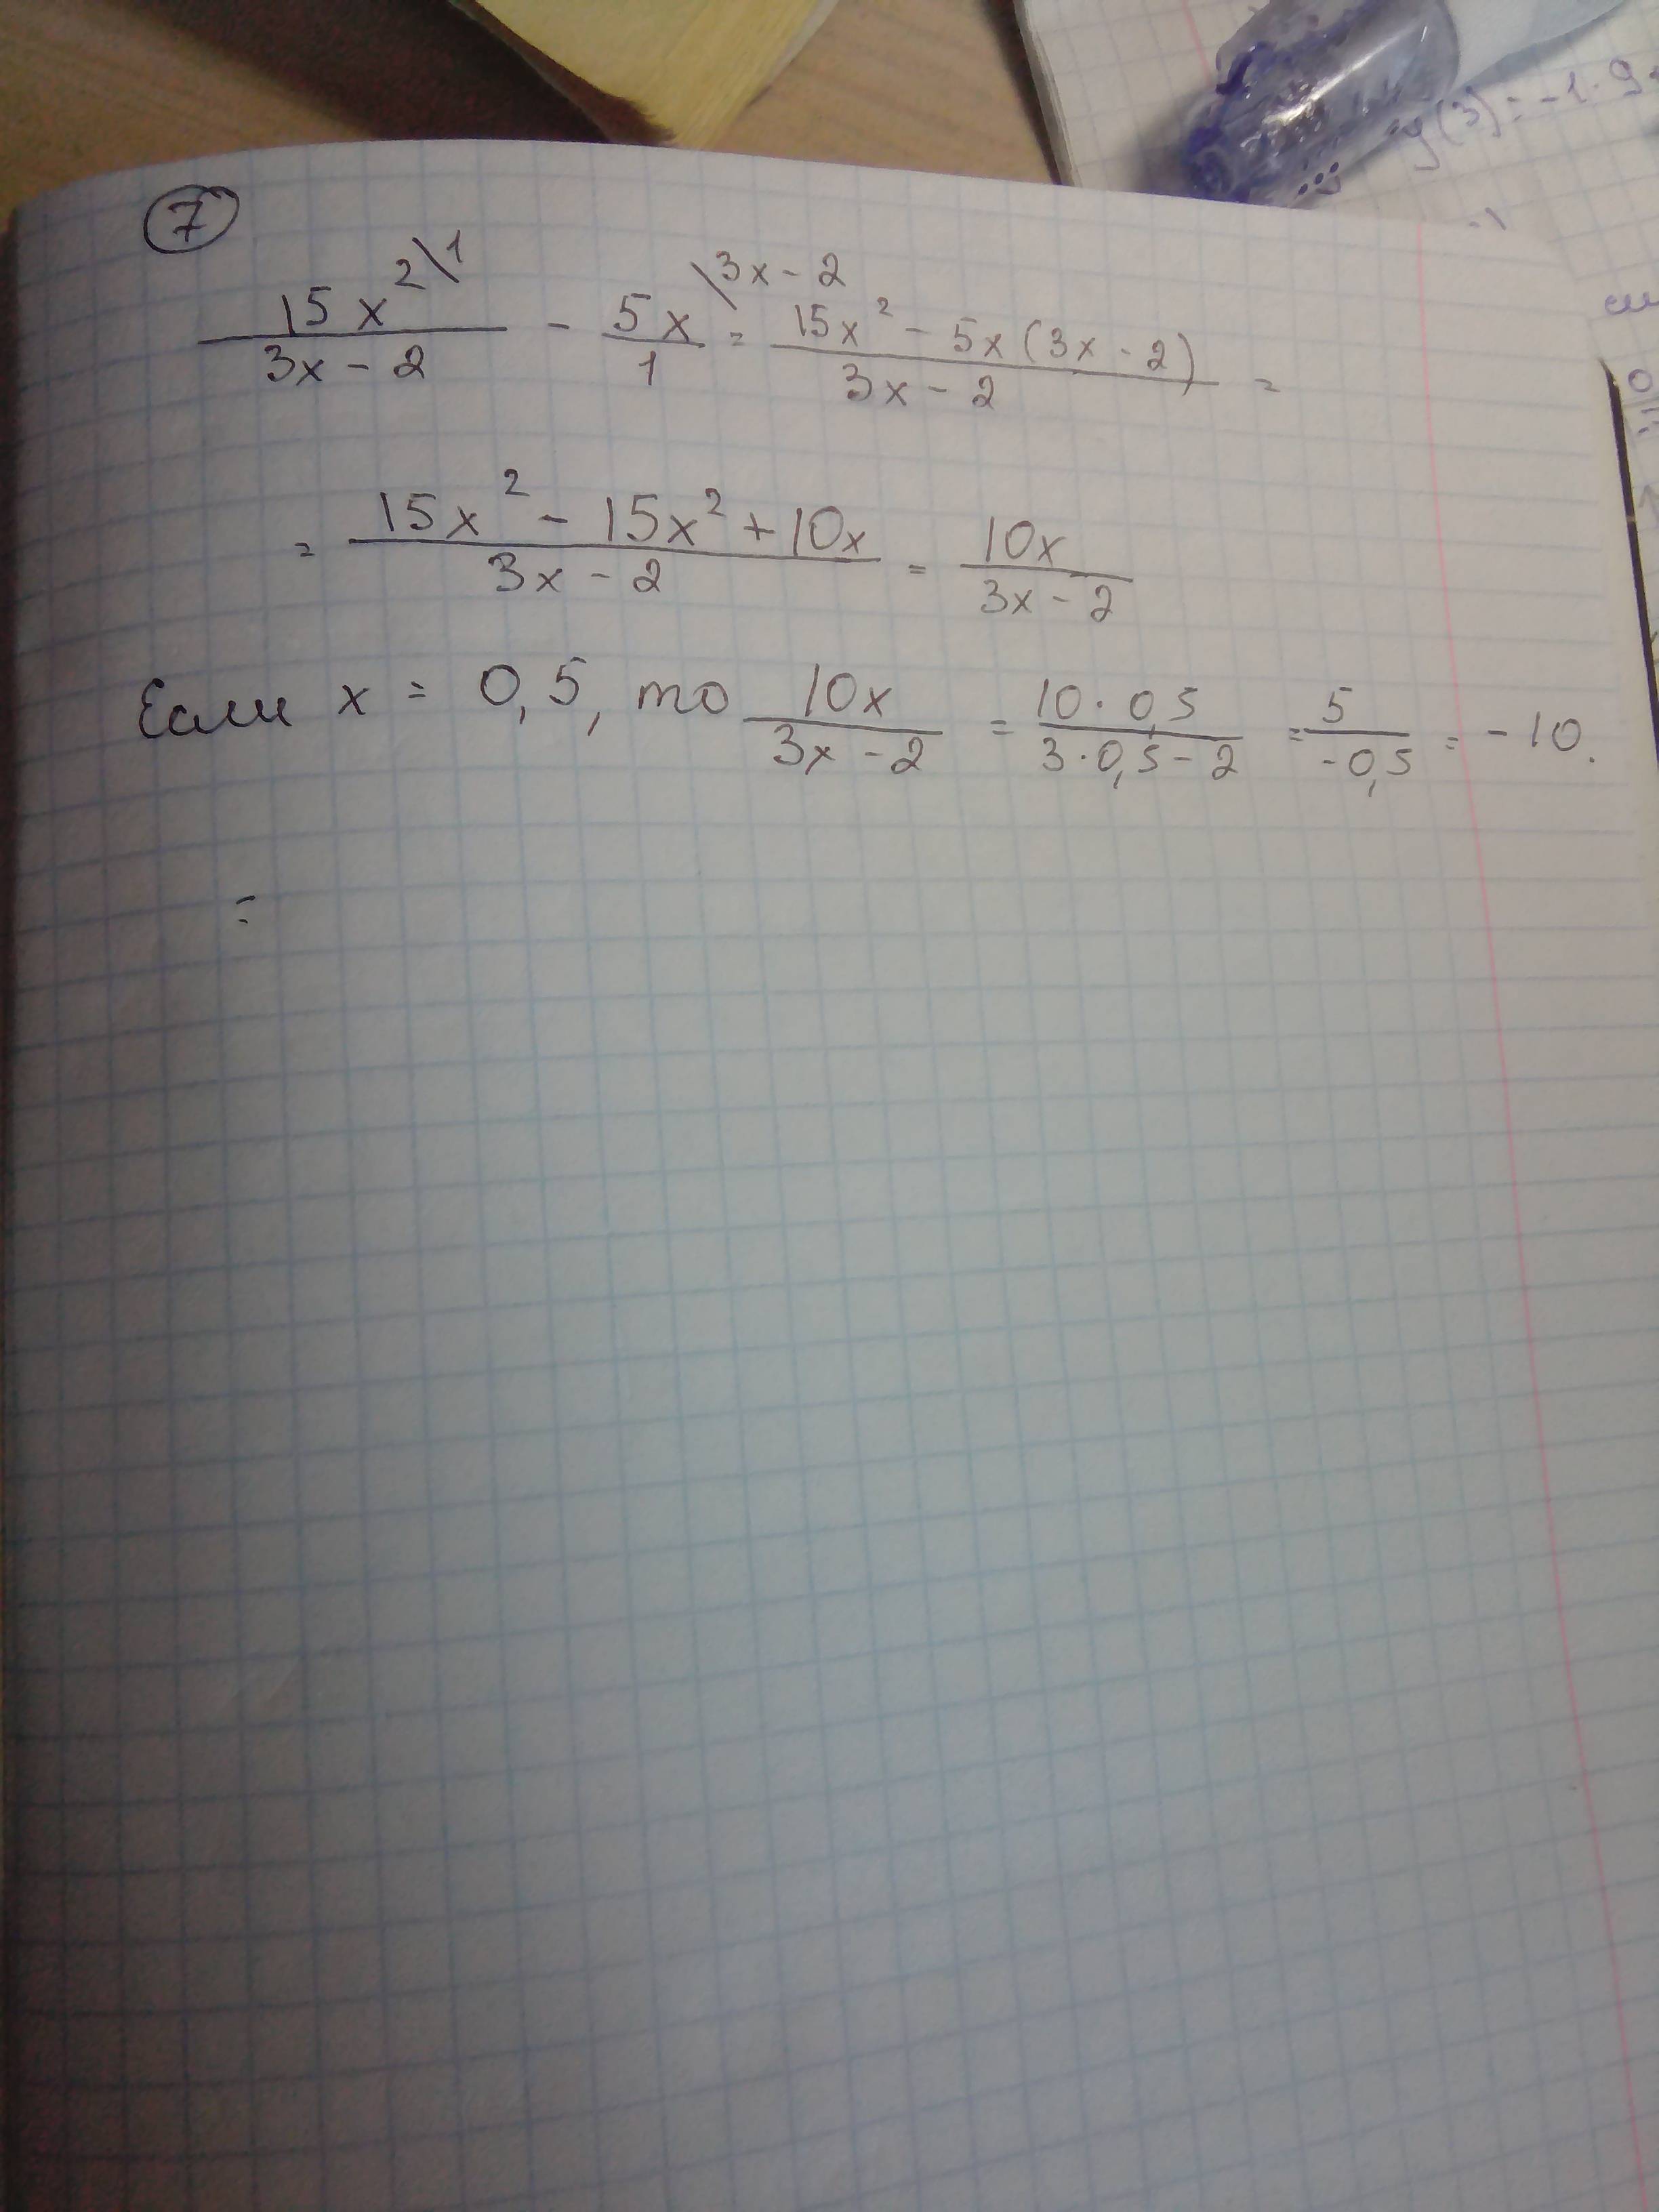 y(3)=-1·9
7
15x²\1 / 3x-2 - 5x\3x-2 / 1 = 15x²-5x(3x-2) / 3x-2 =
= 15x²-15x²+10x / 3x-2 = 10x / 3x-2
Если x = 0,5, то 10x / 3x-2 = 10·0,5 / 3·0,5-2 = 5 / -0,5 = -10.
=